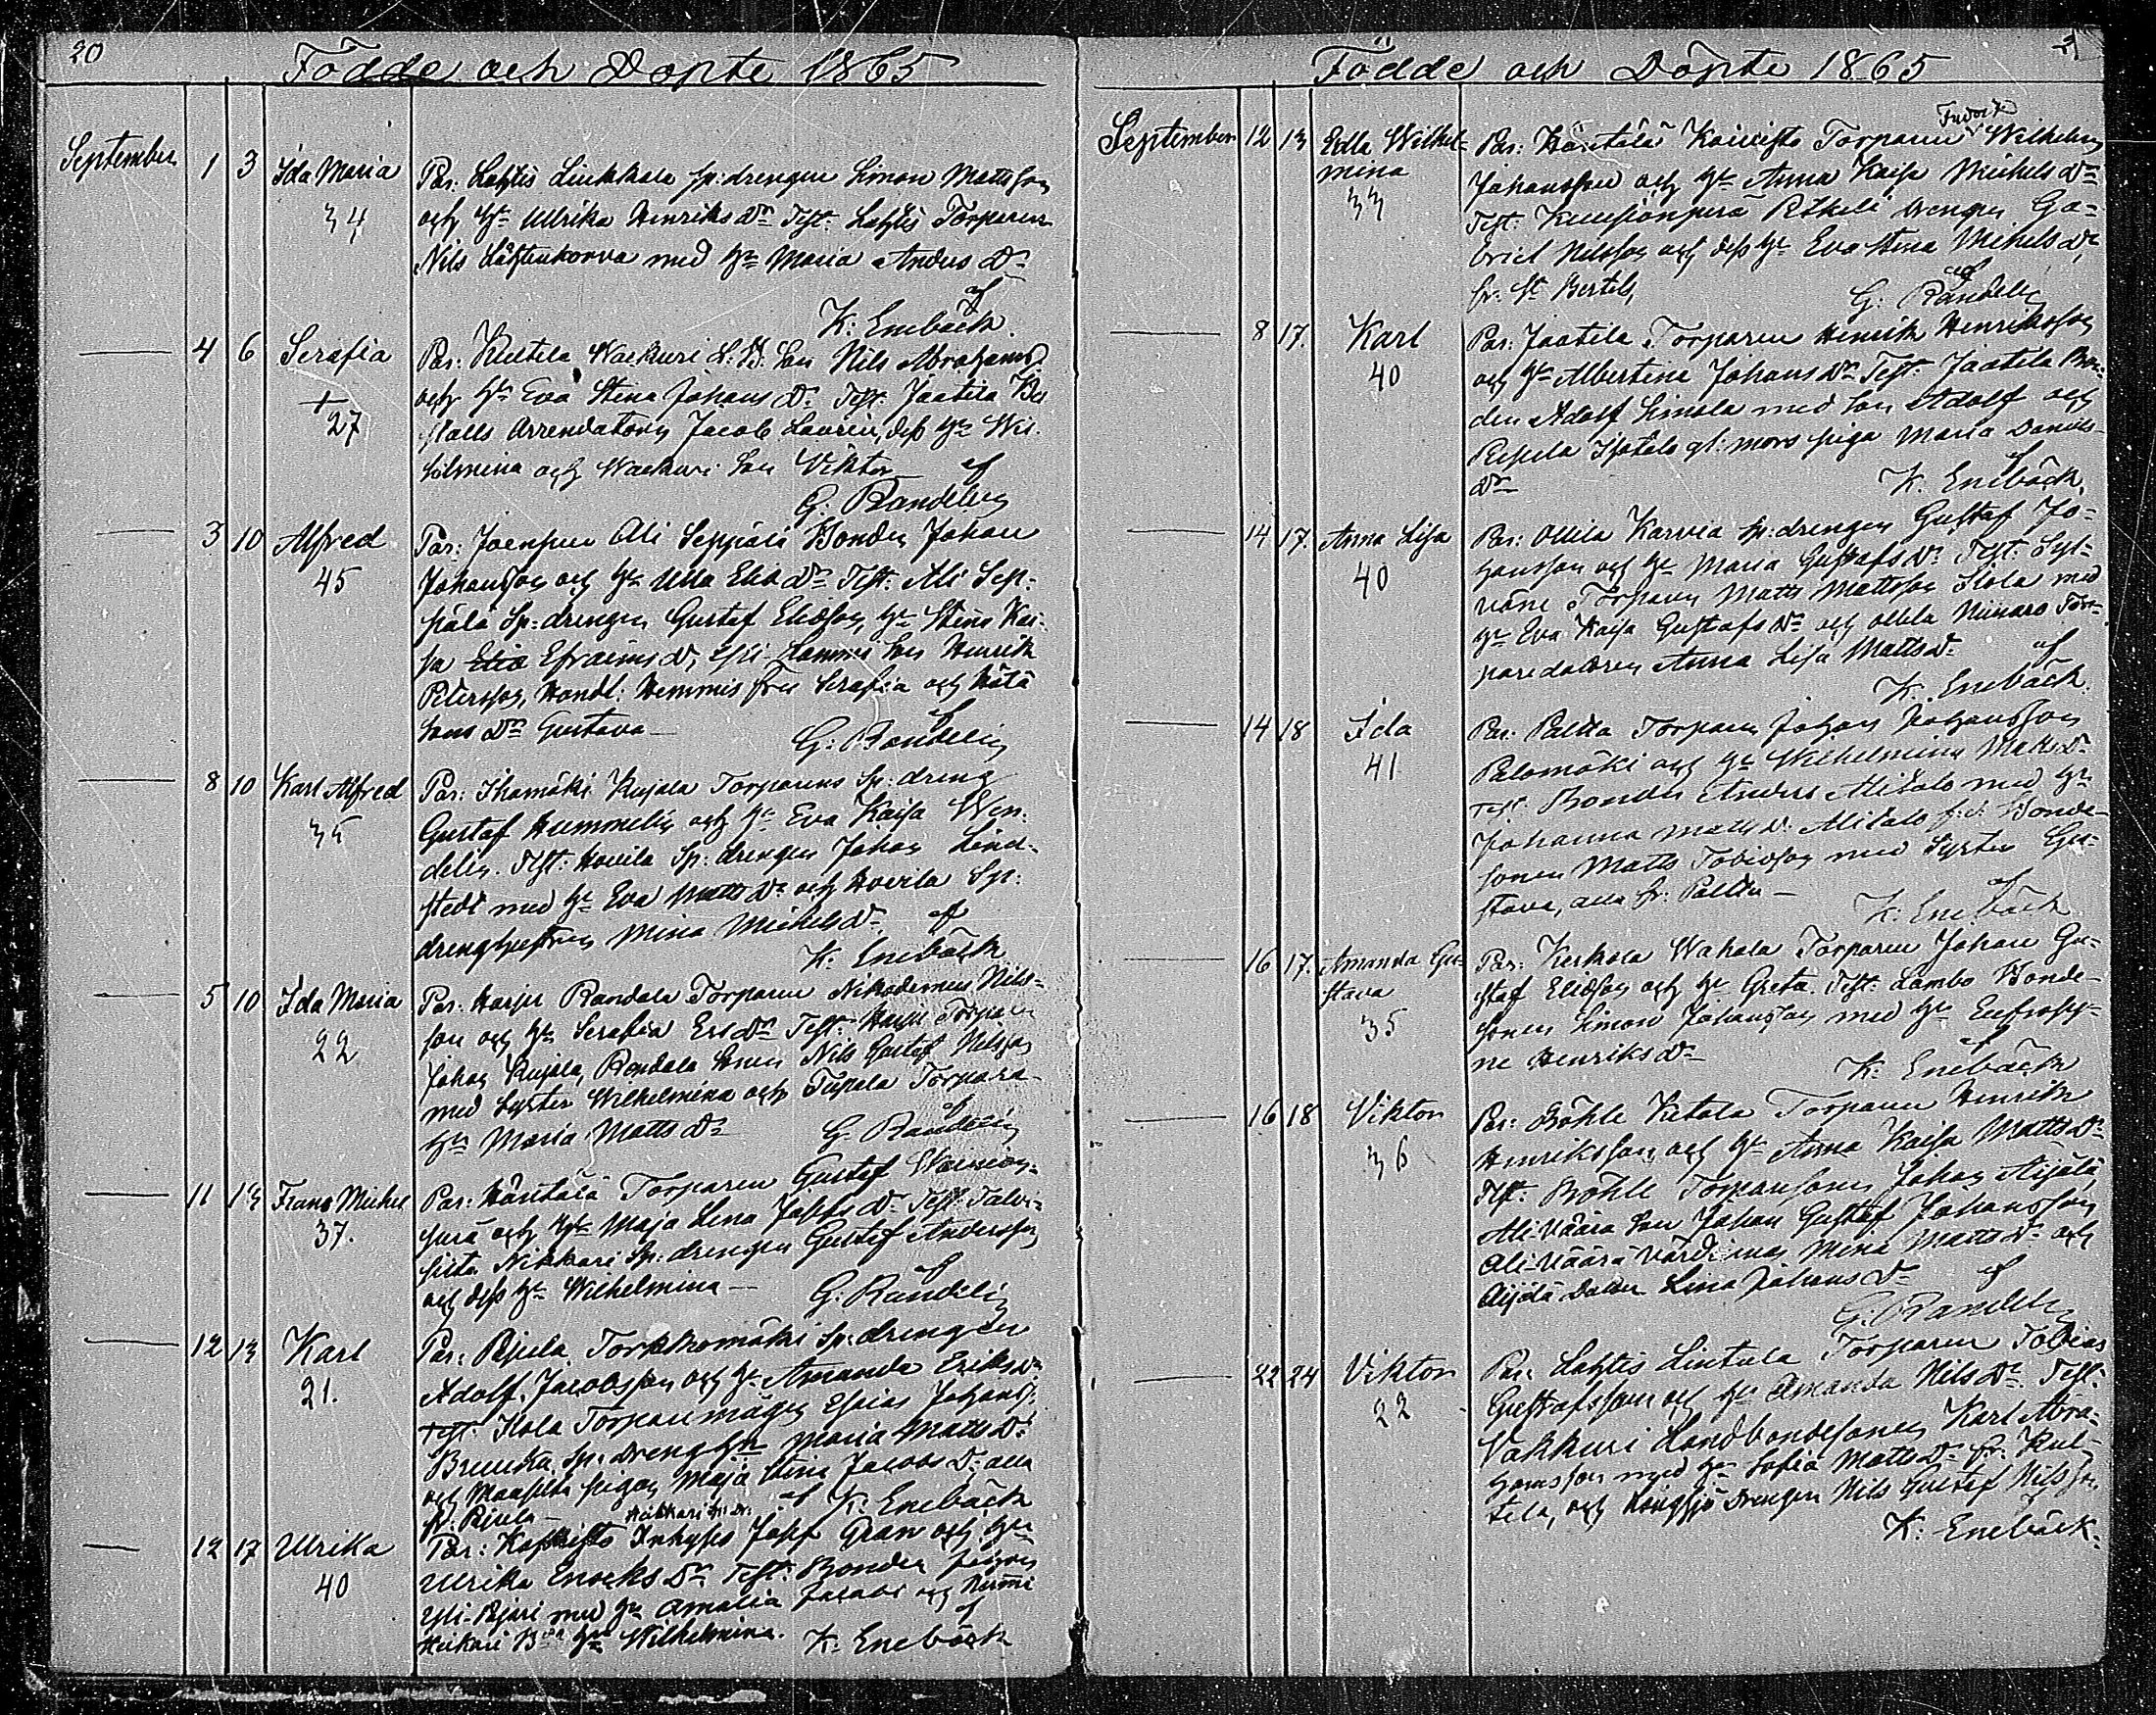 20
Födde och Döpte 1865
September 1 3 Ida Maria Par: Lahtis Linkkala sp:drengen Simon Mattsson
34 och hu Ulrika Henriks Dr Test: Lahtis Torparen
Nils Lähtenkorva med hu Maria Anders Dr
af
K: Enebäck
4 6 Serafia Par: Kultela Wackuri L:B: Son Nils Abrahams
och hu Eva Stina Johans Dr Test. Jaatila Bo
+
27 ställs Arrendatorn Jacob Laurin, dess hu Wil-
helmina och Wackuri Son Viktor af
G: Randelin
3 10 Alfred Par: Joenperi Ali Seppälä Bonden Johan
45 Johansson och hu Ulla Elia Dr Test: Ali Sep-
pälä Sp:drengen Gustaf Eliasson, hu Stina Kai-
sa Elia Efraims Dr, Yli Lammi Son Henrik
Petersson, Handl: Hemmis fru Serafia och
Sons Dr Gustava af
G: Randelin
8 10 Karl Alfred Par: Ihamäki Kujala Torparens Sp:dreng
35 Gustaf Hummelin och hu Eva Kaisa Wen-
delin. Test: Hovila Sp:drengen Johan Lind-
stedt med hu Eva Matts Dr och Hovila Sp:
drenghustrun Mina Michels Dr af
K: Enebäck
5 10 Ida Maria Par. Harju Randala Torparen Nikodemus Nils-
22 son och hu Serafia Ers Dr Test: Harju Torparen
Johan Kujala, Randala Sonen Nils Gustaf Nilsson
med Syster Wilhelmina och Tupala Torpare
hu Maria Matts Dr af
G. Randelin
11 13 Frans Michel Par: Häntälä Torparen Gustaf Wainion-
37. perä och hu Maja Lena Josefs Dr Test: Talvi-
silta Nikkari Sp:drengen Gustaf Andersson
och dess hu Wilhelmina af
G: Randelin
12 13 Karl Par: Pijula Torkkomäki Sp:drengen
21. Adolf Jacobsson och hu Amanda Eriks Dr
Test. Isola Torparemågen Esaias Johanss.
Sp:dreng hu Maria Matts Dr
och pigan Maja Stina Jacobs Dr alla
fr. Pijula af K: Enebäck
Heikkari
12 17 Ulrika Par: Inhyses Josef Gran och hu
40 Ulrika Enoks Dr Test: Bonden
Yli-Pijari med hu Amalia Jacobs och Nummi
Heikari hu Wilhelmina. af
K: Enebäck
21
Födde och Döpte 1865
September 12 13 Edla Wilhel- Par: Häntälä Koivisto Torparen Fredrik Wilhelm
mina Johansson och hu Anna Kaisa Michels Dr
33 Test: Kuusjonperä Rikala drengen Ga-
briel Nilsson och dess hu Eva Stina Mikels Dr
fr. St Bertels, af
G: Randelin
8 17. Karl Par: Jaatila Torparen Henrik Henriksson
40 och hu Albertina Johans Dr Test: Jaatila Bon-
den Adolf Simola med Son Adolf och
Pijula Isotalo gl: mors piga Maria Daniels
Dr af
K. Enebäck.
14 17. Anna Lisa Par: Ollila Karvia Sp:drengen Gustaf Jo-
40 hansson och hu Maria Gustafs Dr Test: Syl-
väne Torparen Matts Mattsson Isola med
hu Eva Kaisa Gustafs Dr och Ollila Niinaro Tor-
paredottren Anna Lisa Matts Dr af
K. Enebäck.
14 18 Ida Par. Paltta Torparen Johan Johansson
41 Palomäki och hu Wilhelmina Matts Dr
Test. Bonden Anders Alitalo med hu
Johanna Matts Dr. Alitalo f.d. Bonde-
sonen Matts Tobiasson med Syster Gu-
stava, alla fr: Paltta af
K: Enebäck
16 17. Amanda Gu- Par: Kerkola Wahala Torparen Johan Gu-
stava staf Eliasson och hu Greta. Test: Lambo Bonde-
35 sonen Simon Johansson med hu Eufrosy-
ne Henriks Dr af
K: Enebäck
16 18 Viktor Par: Böhle Ketala Torparen Henrik
36 Henriksson och hu Anna Kaisa Matts Dr
Test: Böhle Torparesonen Johan Äijälä,
Ali-Väärä Son Johan Gustaf Johansson
Ali-Väärä Värdinnan Mina Matts Dr och
Äijälä Dotter Lena Johans Dr af
G: Randelin
22 24 Viktor Par: Lahtis Lintula Torparen Tobias
22 Gustafsson och hu Amanda Nils Dr. Test:
Vakkuri Landbondesonen Karl Abra-
hamsson med hu Sofia Matts Dr fr. Kul-
tela, och Haigsjö drengen Nils Gustaf Nilsson
K: Enebäck.